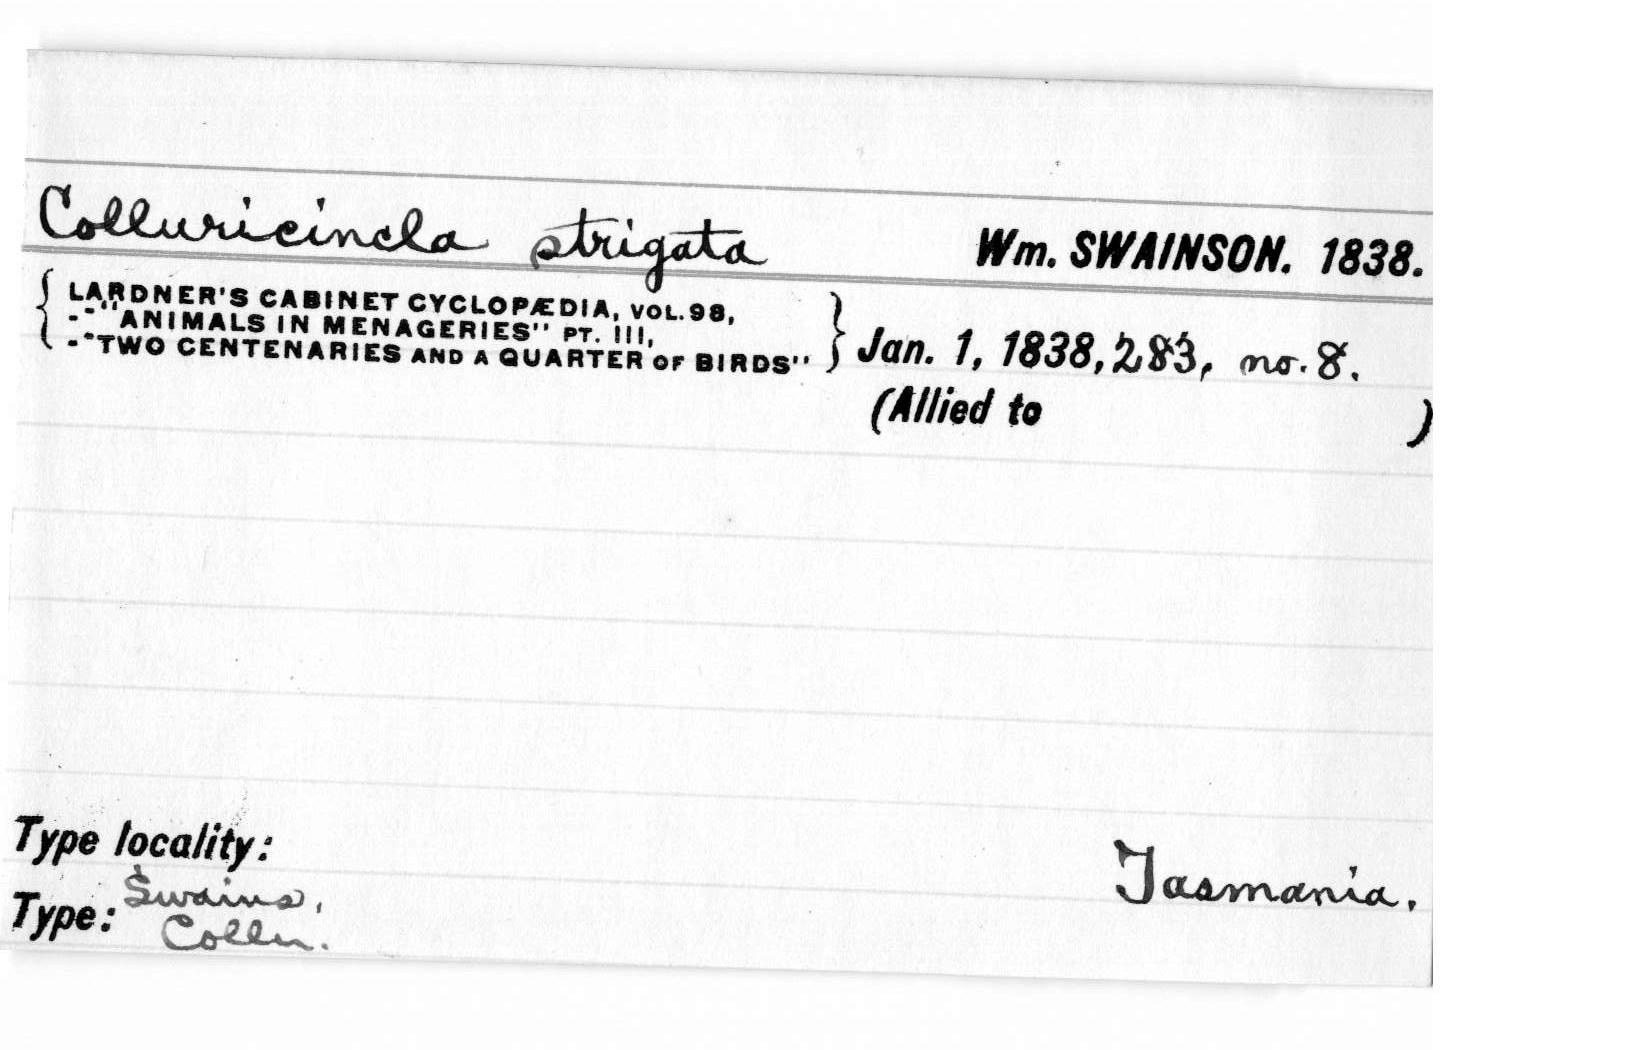 Colluricincla strigata Wm. SWAINSON. 1838.
{ LARDNER'S CABINET CYCLOPÆDIA, VOL. 98,
--"ANIMALS IN MENAGERIES" PT. III,
--"TWO CENTENARIES AND A QUARTER OF BIRDS" } Jan. 1, 1838, 283, no. 8.
(Allied to )
Type locality: Tasmania.
Type: Swains.
Colln.